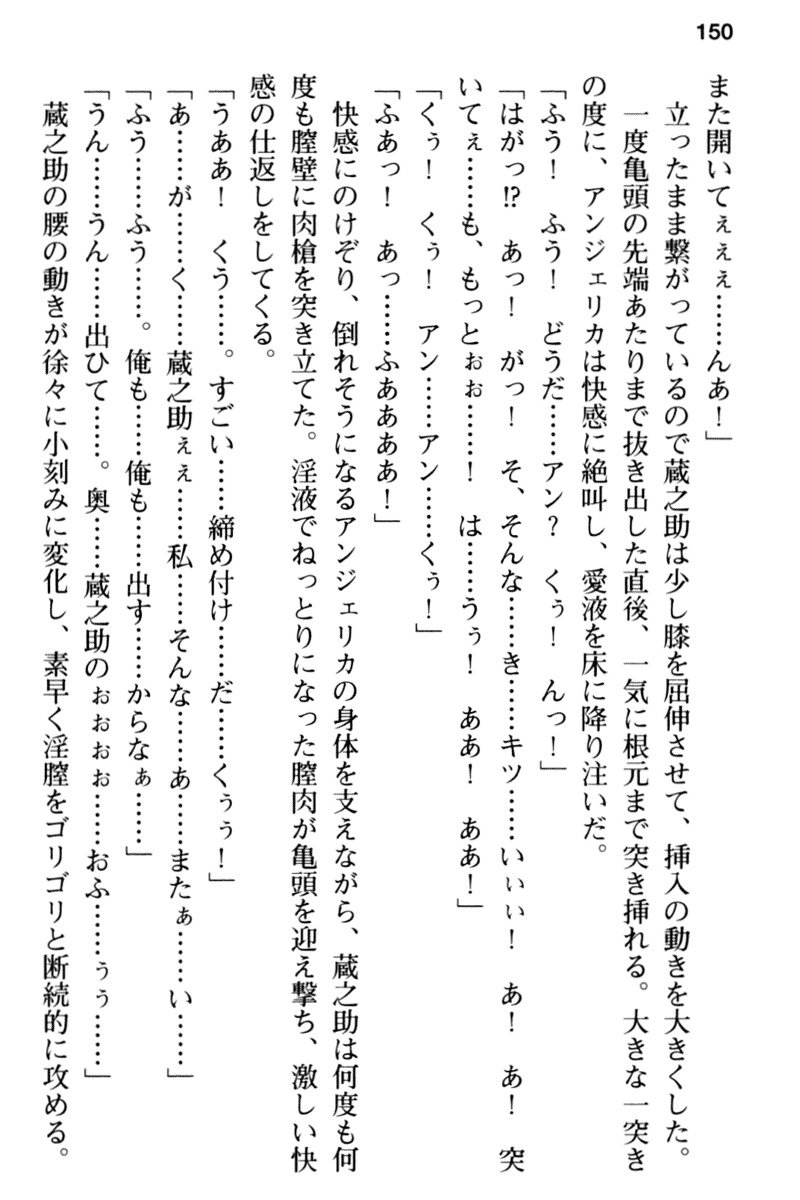 150
また開いてぇぇぇ……んあ！」
立ったまま繋がっているので蔵之助は少し膝を屈伸させて、挿入の動きを大きくした。
一度亀頭の先端あたりまで抜き出した直後、一気に根元まで突き挿れる。大きな一突き
の度に、アンジェリカは快感に絶叫し、愛液を床に降り注いだ。
「ふう！　ふう！　どうだ……アン？　くぅ！　んっ！」
「はがっ!?　あっ！　がっ！　そ、そんな……き……キツ……いぃぃ！　あ！　あ！　突
いてぇ……も、もっとぉぉ……！　は……うぅ！　ああ！　ああ！」
「くぅ！　くぅ！　アン……アン……くぅ！」
「ふあっ！　あっ……ふああああ！」
快感にのけぞり、倒れそうになるアンジェリカの身体を支えながら、蔵之助は何度も何
度も膣壁に肉槍を突き立てた。淫液でねっとりになった膣肉が亀頭を迎え撃ち、激しい快
感の仕返しをしてくる。
「うああ！　くう……。すごい……締め付け……だ……くぅぅ！」
「あ……が……く……蔵之助ぇぇ……私……そんな……あ……またぁ……い……」
「ふう……ふう……。俺も……俺も……出す……からなぁ……」
「うん……うん……出ひて……。奥……蔵之助のぉぉぉぉ……おふ……ぅぅ……」
蔵之助の腰の動きが徐々に小刻みに変化し、素早く淫膣をゴリゴリと断続的に攻める。